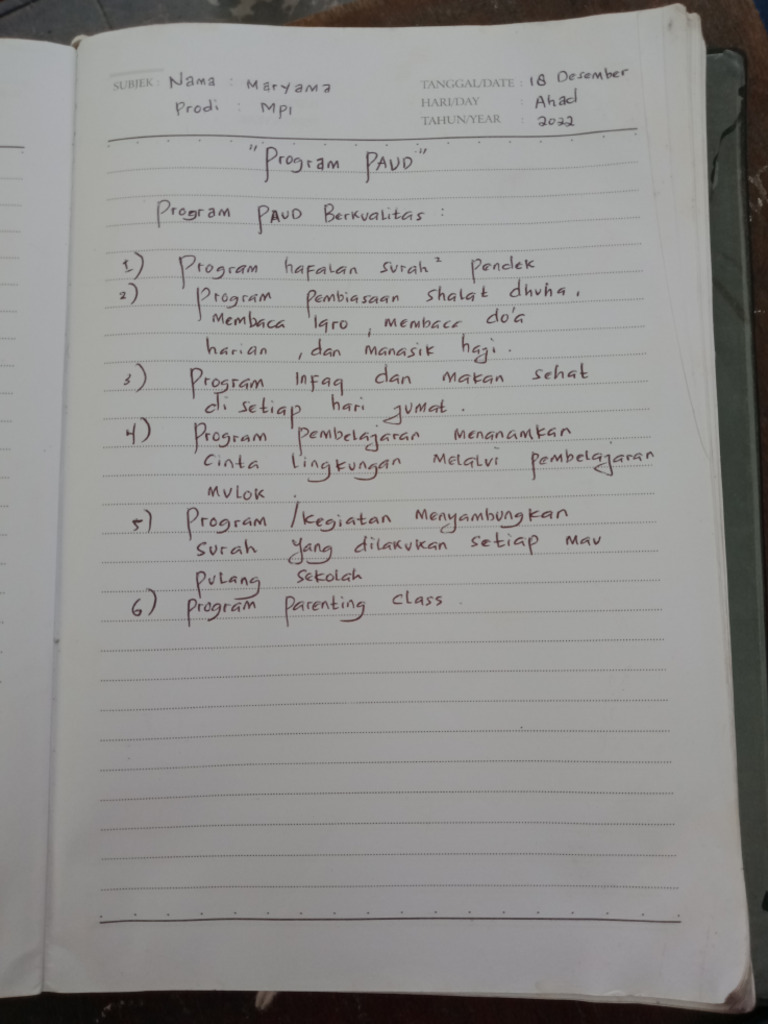 SUBJEK : Nama : Maryama
Prodi : MPI
TANGGAL/DATE : 18 Desember
HARI/DAY : Ahad
TAHUN/YEAR : 2022
"Program PAUD"
Program PAUD Berkualitas :
1) Program hafalan surah² pendek
2) Program pembiasaan shalat dhuha,
Membaca Iqro, membaca do'a
harian, dan manasik haji.
3) Program Infaq dan makan sehat
di setiap hari jumat.
4) Program pembelajaran menanamkan
cinta lingkungan melalui pembelajaran
mulok.
5) Program /kegiatan Menyambungkan
surah yang dilakukan setiap mau
pulang sekolah
6) program parenting class.